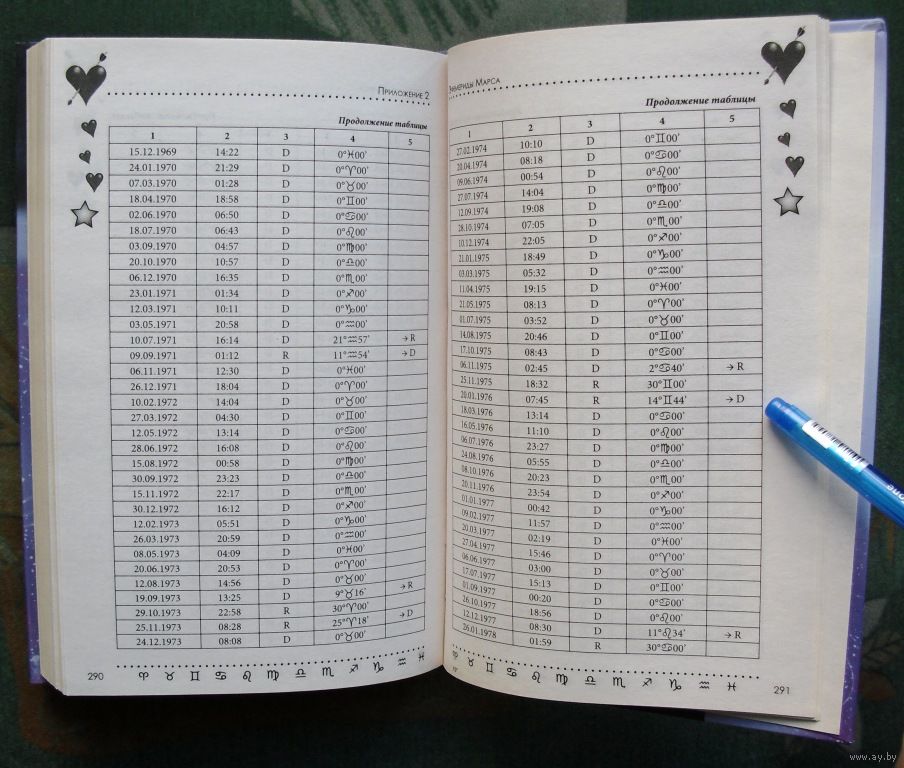 Приложение 2
Продолжение таблицы
1 2 3 4 5
15.12.1969 14:22 D 0°♓00'
24.01.1970 21:29 D 0°♈00'
07.03.1970 01:28 D 0°♉00'
18.04.1970 18:58 D 0°♊00'
02.06.1970 06:50 D 0°♋00'
18.07.1970 06:43 D 0°♌00'
03.09.1970 04:57 D 0°♍00'
20.10.1970 10:57 D 0°♎00'
06.12.1970 16:35 D 0°♏00'
23.01.1971 01:34 D 0°♐00'
12.03.1971 10:11 D 0°♑00'
03.05.1971 20:58 D 0°♒00'
10.07.1971 16:14 D 21°♒57' → R
09.09.1971 01:12 R 11°♒54' → D
06.11.1971 12:30 D 0°♓00'
26.12.1971 18:04 D 0°♈00'
10.02.1972 14:04 D 0°♉00'
27.03.1972 04:30 D 0°♊00'
12.05.1972 13:14 D 0°♋00'
28.06.1972 16:08 D 0°♌00'
15.08.1972 00:58 D 0°♍00'
30.09.1972 23:23 D 0°♎00'
15.11.1972 22:17 D 0°♏00'
30.12.1972 16:12 D 0°♐00'
12.02.1973 05:51 D 0°♑00'
26.03.1973 20:59 D 0°♒00'
08.05.1973 04:09 D 0°♓00'
20.06.1973 20:53 D 0°♈00'
12.08.1973 14:56 D 0°♉00'
19.09.1973 13:25 D 9°♉16' → R
29.10.1973 22:58 R 30°♈00'
25.11.1973 08:28 R 25°♈18' → D
24.12.1973 08:08 D 0°♉00'
290 ♈ ♉ ♊ ♋ ♌ ♍ ♎ ♏ ♐ ♑ ♒ ♓
Эфемериды Марса
Продолжение таблицы
1 2 3 4 5
27.02.1974 10:10 D 0°♊00'
20.04.1974 08:18 D 0°♋00'
09.06.1974 00:54 D 0°♌00'
27.07.1974 14:04 D 0°♍00'
12.09.1974 19:08 D 0°♎00'
28.10.1974 07:05 D 0°♏00'
10.12.1974 22:05 D 0°♐00'
21.01.1975 18:49 D 0°♑00'
03.03.1975 05:32 D 0°♒00'
11.04.1975 19:15 D 0°♓00'
21.05.1975 08:13 D 0°♈00'
01.07.1975 03:52 D 0°♉00'
14.08.1975 20:46 D 0°♊00'
17.10.1975 08:43 D 0°♋00'
06.11.1975 02:45 D 2°♋40' → R
25.11.1975 18:32 R 30°♊00'
20.01.1976 07:45 R 14°♊44' → D
18.03.1976 13:14 D 0°♋00'
16.05.1976 11:10 D 0°♌00'
06.07.1976 23:27 D 0°♍00'
24.08.1976 05:55 D 0°♎00'
08.10.1976 20:23 D 0°♏00'
20.11.1976 23:54 D 0°♐00'
01.01.1977 00:42 D 0°♑00'
09.02.1977 11:57 D 0°♒00'
20.03.1977 02:19 D 0°♓00'
27.04.1977 15:46 D 0°♈00'
06.06.1977 03:00 D 0°♉00'
17.07.1977 15:13 D 0°♊00'
01.09.1977 00:20 D 0°♋00'
26.10.1977 18:56 D 0°♌00'
12.12.1977 08:30 D 11°♌34' → R
26.01.1978 01:59 R 30°♋00'
♈ ♉ ♊ ♋ ♌ ♍ ♎ ♏ ♐ ♑ ♒ ♓ 291
www.ay.by